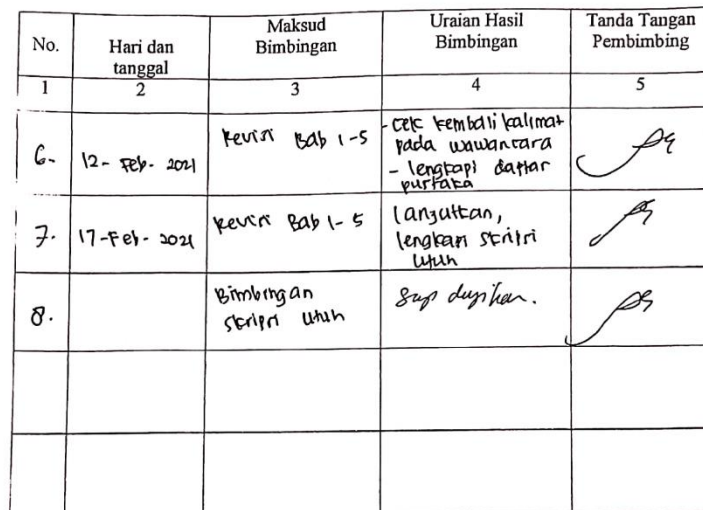 No.
Hari dan
tanggal
Maksud
Bimbingan
Uraian Hasil
Bimbingan
Tanda Tangan
Pembimbing
1
2
3
4
5
6.
12-Feb-2021
Revisi Bab 1-5
- Cek kembali kalimat
pada wawancara
- lengkapi daftar
pustaka
7.
17-Feb-2021
Revisi Bab 1-5
lanjutkan,
lengkapi skripsi
utuh
8.
Bimbingan
skripsi utuh